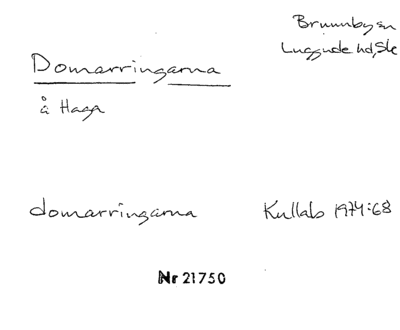 Brunnby sn
Luggude hd, Sk
Domarringarna
å Haga
domarringarna
Kullab 1974:68
Nr 21750